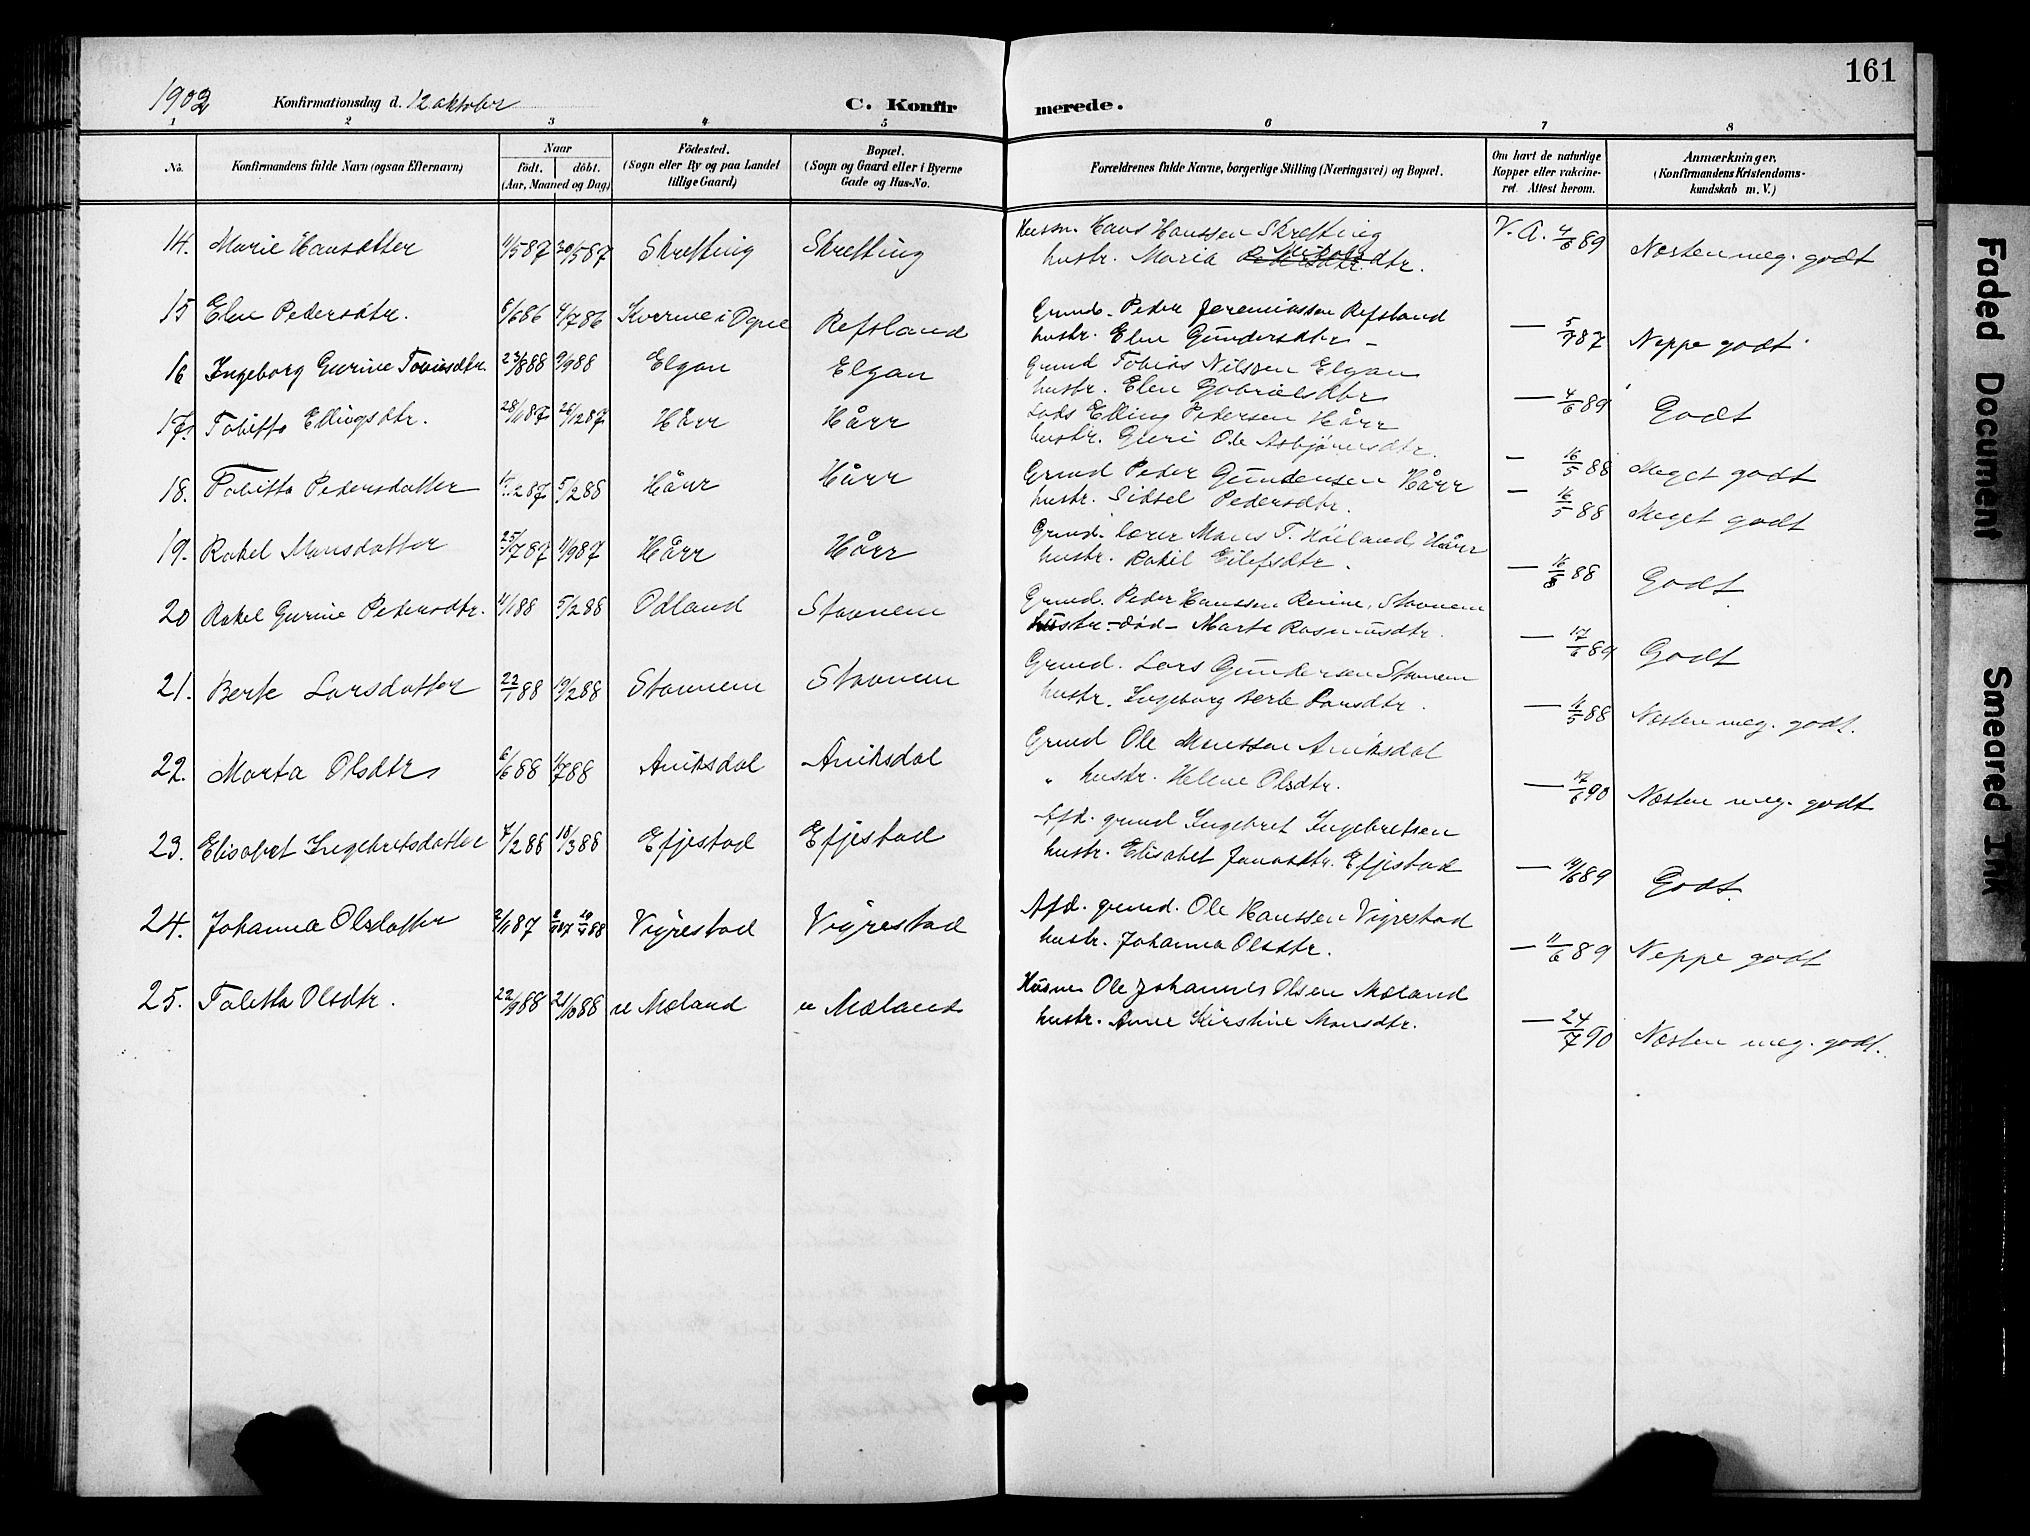 161
1902 Konfirmationsdag d. 12 oktober C. Konfirmerede.
1 2 3 4 5 6 7 8
No. Konfirmandens fulde Navn (ogsaa Efternavn) Naar födt. döbt. (Aar, Maaned og Dag) Födested. (Sogn eller By og paa Landet tillige Gaard) Bopæl. (Sogn og Gaard eller i Byerne Gade og Hus-No. Forældrenes fulde Navne, borgerlige Stilling (Næringsvei) og Bopæl. Om havt de naturlige Kopper eller vakcineret. Attest herom. Anmærkninger. (Konfirmandens Kristendomskundskab m. V.)
14. Marie Hansdatter 1/5 87 30/5 87 Skretting Skretting Husm. Hans Hanssen Skretting V. A. 4/6 89 Næsten meg. godt
hustr. Maria dtr.
15 Elen Pedersdtr. 6/6 86 4/7 86 Kverme i Ogne Refsland Grund. Peder Jeremiassen Refsland
hustr. Elen Gundersdtr — 5/7 87 Neppe godt
16 Ingeborg Gurine Tobiasdtr. 23/8 88 9/9 88 Elgan Elgan Grund Tobias Nilssen Elgan
hustr. Elen Gabrielsdtr — 4/6 89 Godt
17. Tobitta Ellingsdtr. 28/11 87 26/12 87 Hårr Hårr Elling Pedersen Hårr
hustr. Guri Ole Asbjörnsdtr. — 16/5 88 Meget godt
18. Tobitta Pedersdatter 5/2 88 Hårr Hårr Grund Peder Gundersen Hårr
hustr. Sidsel Pedersdtr. — 16/5 88 Meget godt
19. Rakel Monsdatter 25/7 87 11/9 87 Hårr Hårr Grund. lærer Mons T. Høiland, Hårr
hustr. Rakel Eilefsdtr. — 16/5 88 Godt
20 Rakel Gurine Pedersdtr. 4/1 88 5/2 88 Odland Stavnem Grund. Peder Hanssen Stavnem
hustr. – död – Marta Rasmusdtr. — 17/6 89 Godt
21. Berte Larsdatter 22/1 88 19/2 88 Stavnem Stavnem Grund. Lars Gundersen Stavnem
hustr. Ingeborg Berte Larsdtr. — 16/5 88 Næsten meg. godt.
22. Marta Olsdtr 6/6 88 1/7 88 Aniksdal Aniksdal Grund Ole Monssen Aniksdal
" hustr. Helene Olsdtr. — 17/6 90 Næsten meg. godt
23. Elisabet Ingebretsdatter 7/2 88 18/3 88 Efjestad Efjestad Afd. grund Ingebret Ingebretsen
hustr. Elisabet Jonasdtr. Efjestad — 14/6 89 Godt.
24. Johanna Olsdatter 2/11 87 Vigrestad Vigrestad Afd. grund. Ole Hanssen Vigrestad
hustr. Johanna Olsdtr. — 11/6 89 Neppe godt
25. Taletta Olsdtr. 22/9 88 21/10 88 n Mæland n Mæland Husm Ole Johannes Olsen Mæland
hustr. Anne Kirstine Monsdtr. — 24/7 90 Næsten meg. godt.
Faded Document
Smeared Ink